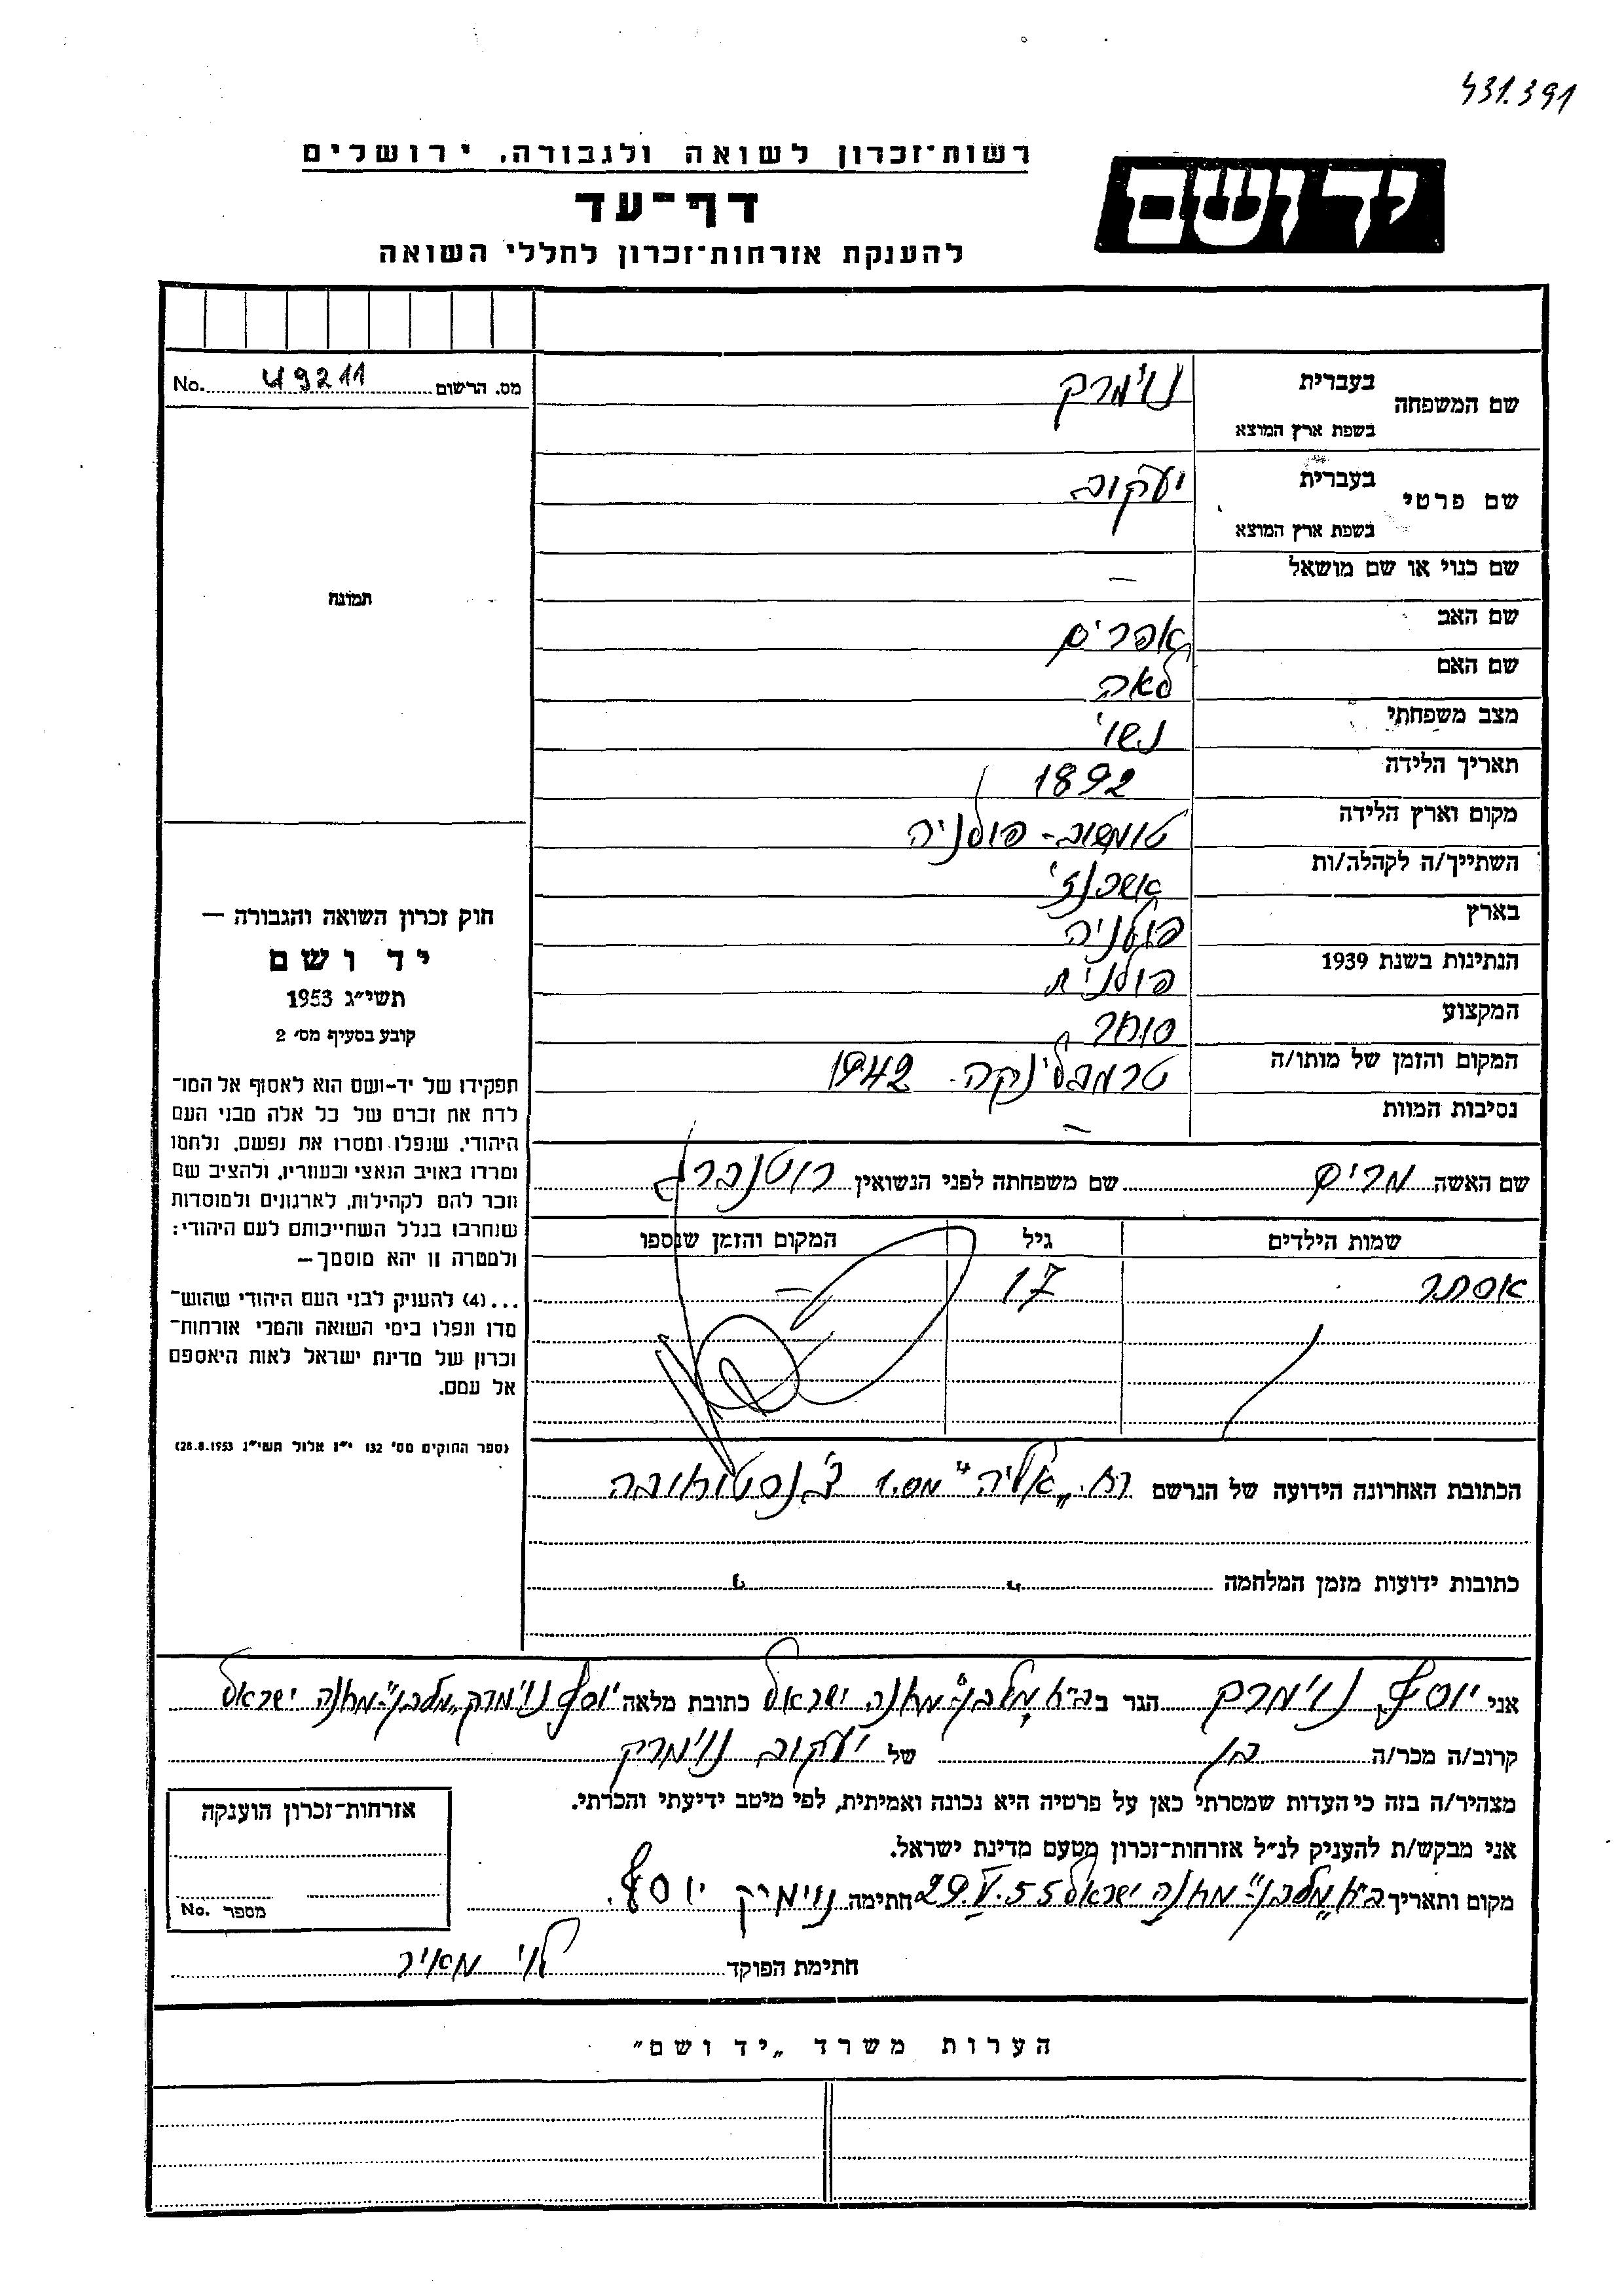 431.391
יד ושם
רשות־זכרון לשואה ולגבורה, ירושלים
דף־עד
להענקת אזרחות־זכרון לחללי השואה
מס. הרשום 49211 No.
תמונה
שם המשפחה בעברית נוימרק
בשפת ארץ המוצא
שם פרטי בעברית יעקוב
בשפת ארץ המוצא
שם כנוי או שם מושאל –
שם האב אפרים
שם האם לאה
מצב משפחתי נשוי
תאריך הלידה 1892
מקום וארץ הלידה טומשוב - פולניה
השתייך/ה לקהלה/ות אשכנזי
בארץ פולניה
הנתינות בשנת 1939 פולנית
המקצוע סוחר
המקום והזמן של מותו/ה טרמבלינקה. 1942
נסיבות המוות –
שם האשה מרים שם משפחתה לפני הנשואין רוטנברג
שמות הילדים גיל המקום והזמן שנספו
אסתר 17 –
הכתובת האחרונה הידועה של הנרשם רח. „אליה" מס. 1 צ'נסטוחובה
כתובות ידועות מזמן המלחמה " "
חוק זכרון השואה והגבורה —
יד ושם
תשי״ג 1953
קובע בסעיף מס׳ 2
תפקידו של יד-ושם הוא לאסוף אל המו־
לדת את זכרם של כל אלה מבני העם
היהודי, שנפלו ומסרו את נפשם, נלחמו
ומרדו באויב הנאצי ובעוזריו, ולהציב שם
וזכר להם לקהילות, לארגונים ולמוסדות
שנחרבו בגלל השתייכותם לעם היהודי;
ולמטרה זו יהא מוסמך—
...(4) להעניק לבני העם היהודי שהוש־
מדו ונפלו בימי השואה והמרי אזרחות־
זכרון של מדינת ישראל לאות היאספם
אל עמם.
(ספר החוקים מס׳ 132 י״ז אלול תשי״ג 28.8.1953)
אני יוסף נוימרק הגר ב בית „מלבן" מחנה ישראל כתובת מלאה יוסף נוימרק „מלבן" מחנה ישראל
קרוב/ה מכר/ה בן של יעקוב נוימרק
מצהיר/ה בזה כי העדות שמסרתי כאן על פרטיה היא נכונה ואמיתית, לפי מיטב ידיעתי והכרתי.
אני מבקש/ת להעניק לנ״ל אזרחות־זכרון מטעם מדינת ישראל.
מקום ותאריך בית „מלבן" מחנה ישראל 29.V.55 חתימה נוימרק יוסף.
חתימת הפוקד לוי מאיר
אזרחות־זכרון הוענקה
מספר No.
הערות משרד „יד ושם״